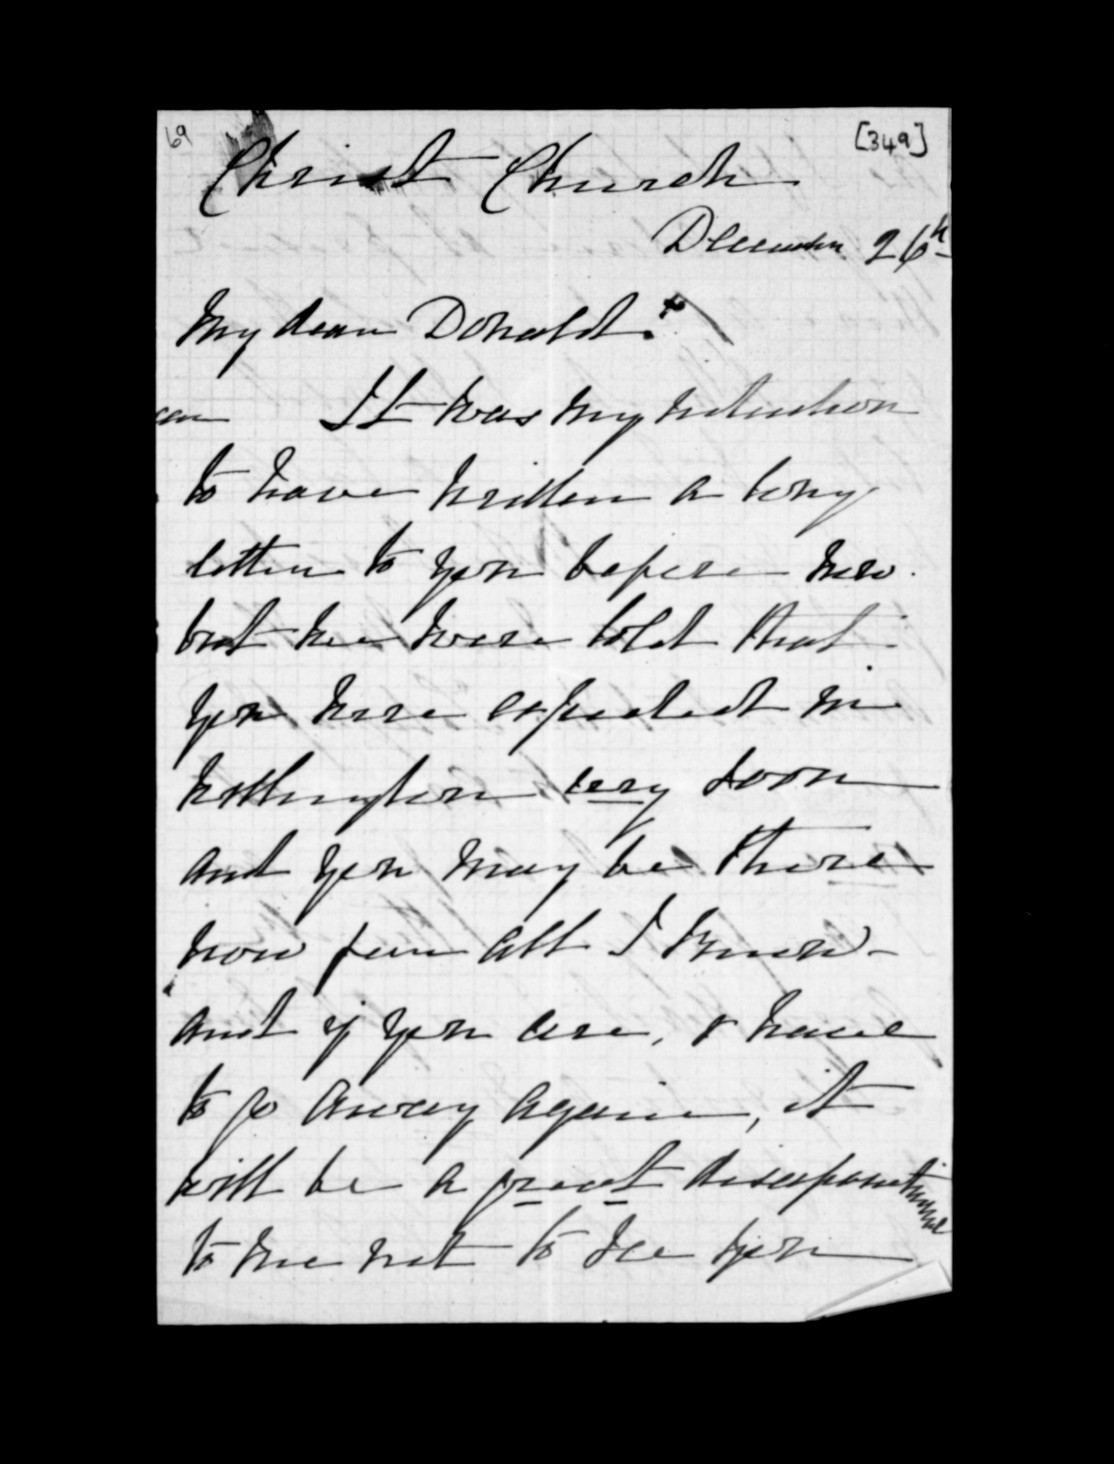 69
[349]
Christ Church
December 26th
My dear Donald.
It was my intention
to have written a long
letter to you before now.
but we were told that
you were expected in
Wellington very soon
and you may be there
now for all I know -
and if you are, & have
to go away again, it
will be a great disappointment
to me not to see you